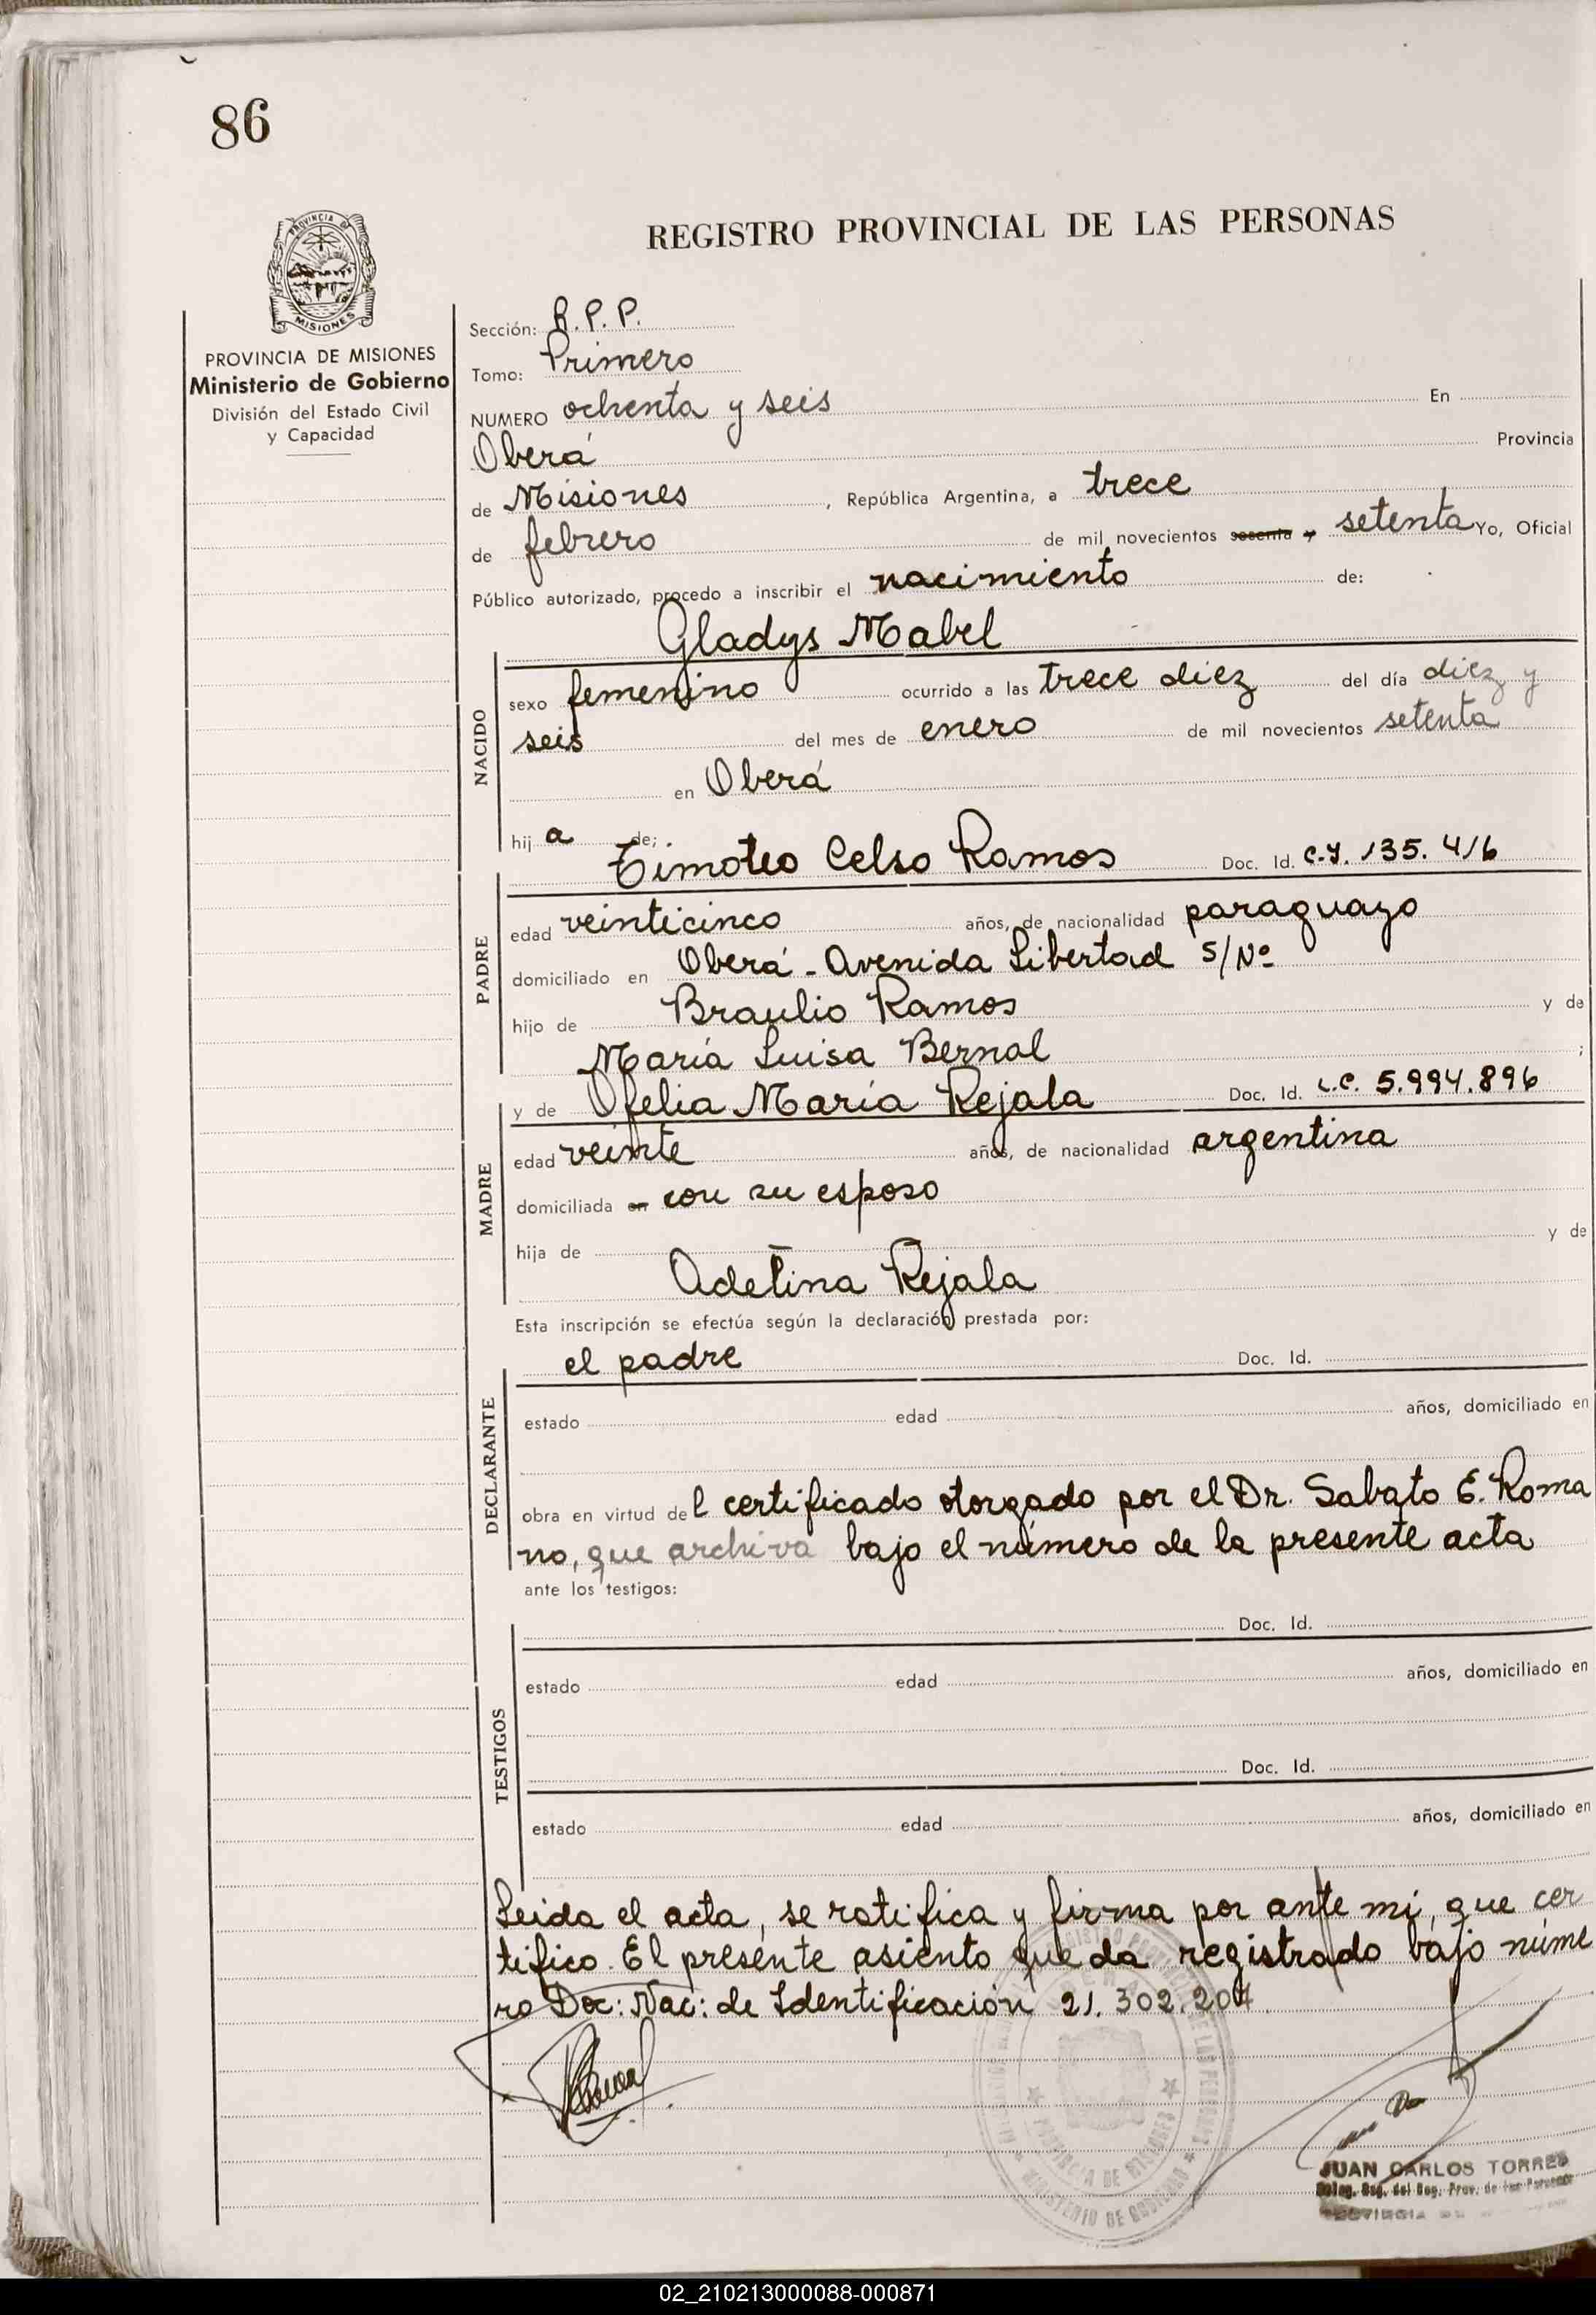 86
PROVINCIA DE
MISIONES
PROVINCIA DE MISIONES
Ministerio de Gobierno
División del Estado Civil
y Capacidad
REGISTRO PROVINCIAL DE LAS PERSONAS
Sección: R.P.P.
Tomo: Primero
NUMERO ochenta y seis En
Oberá Provincia
de Misiones, República Argentina, a trece
de febrero de mil novecientos sesenta y setenta Yo, Oficial
Público autorizado, procedo a inscribir el nacimiento de:
Gladys Mabel
NACIDO
sexo femenino ocurrido a las trece diez del día diez y
seis del mes de enero de mil novecientos setenta
en Oberá
hij a de;
Timoteo Celso Ramos Doc. Id. C.I. 135.416
PADRE
edad veinticinco años, de nacionalidad paraguayo
domiciliado en Oberá - Avenida Libertad S/Nº
hijo de Braulio Ramos y de
María Luisa Bernal ;
y de Ofelia María Rejala Doc. Id. L.C. 5.994.896
MADRE
edad veinte años, de nacionalidad argentina
domiciliada en con su esposo
hija de y de
Adelina Rejala
Esta inscripción se efectúa según la declaración prestada por:
el padre Doc. Id.
DECLARANTE
estado edad años, domiciliado en
obra en virtud del certificado otorgado por el Dr. Sabato E. Roma
no, que archiva bajo el número de la presente acta
ante los testigos:
Doc. Id.
TESTIGOS
estado edad años, domiciliado en
Doc. Id.
estado edad años, domiciliado en
Leida el acta, se ratifica y firma por ante mí, que cer
tifico. El presente asiento queda registrado bajo núme
ro Doc: Nac: de Identificación 21.302.204
PROVINCIA DE MISIONES
MINISTERIO DE GOBIERNO
JUAN CARLOS TORRES
Deleg. del Reg. Prov. de las Personas
PROVINCIA DE
02_210213000088-000871